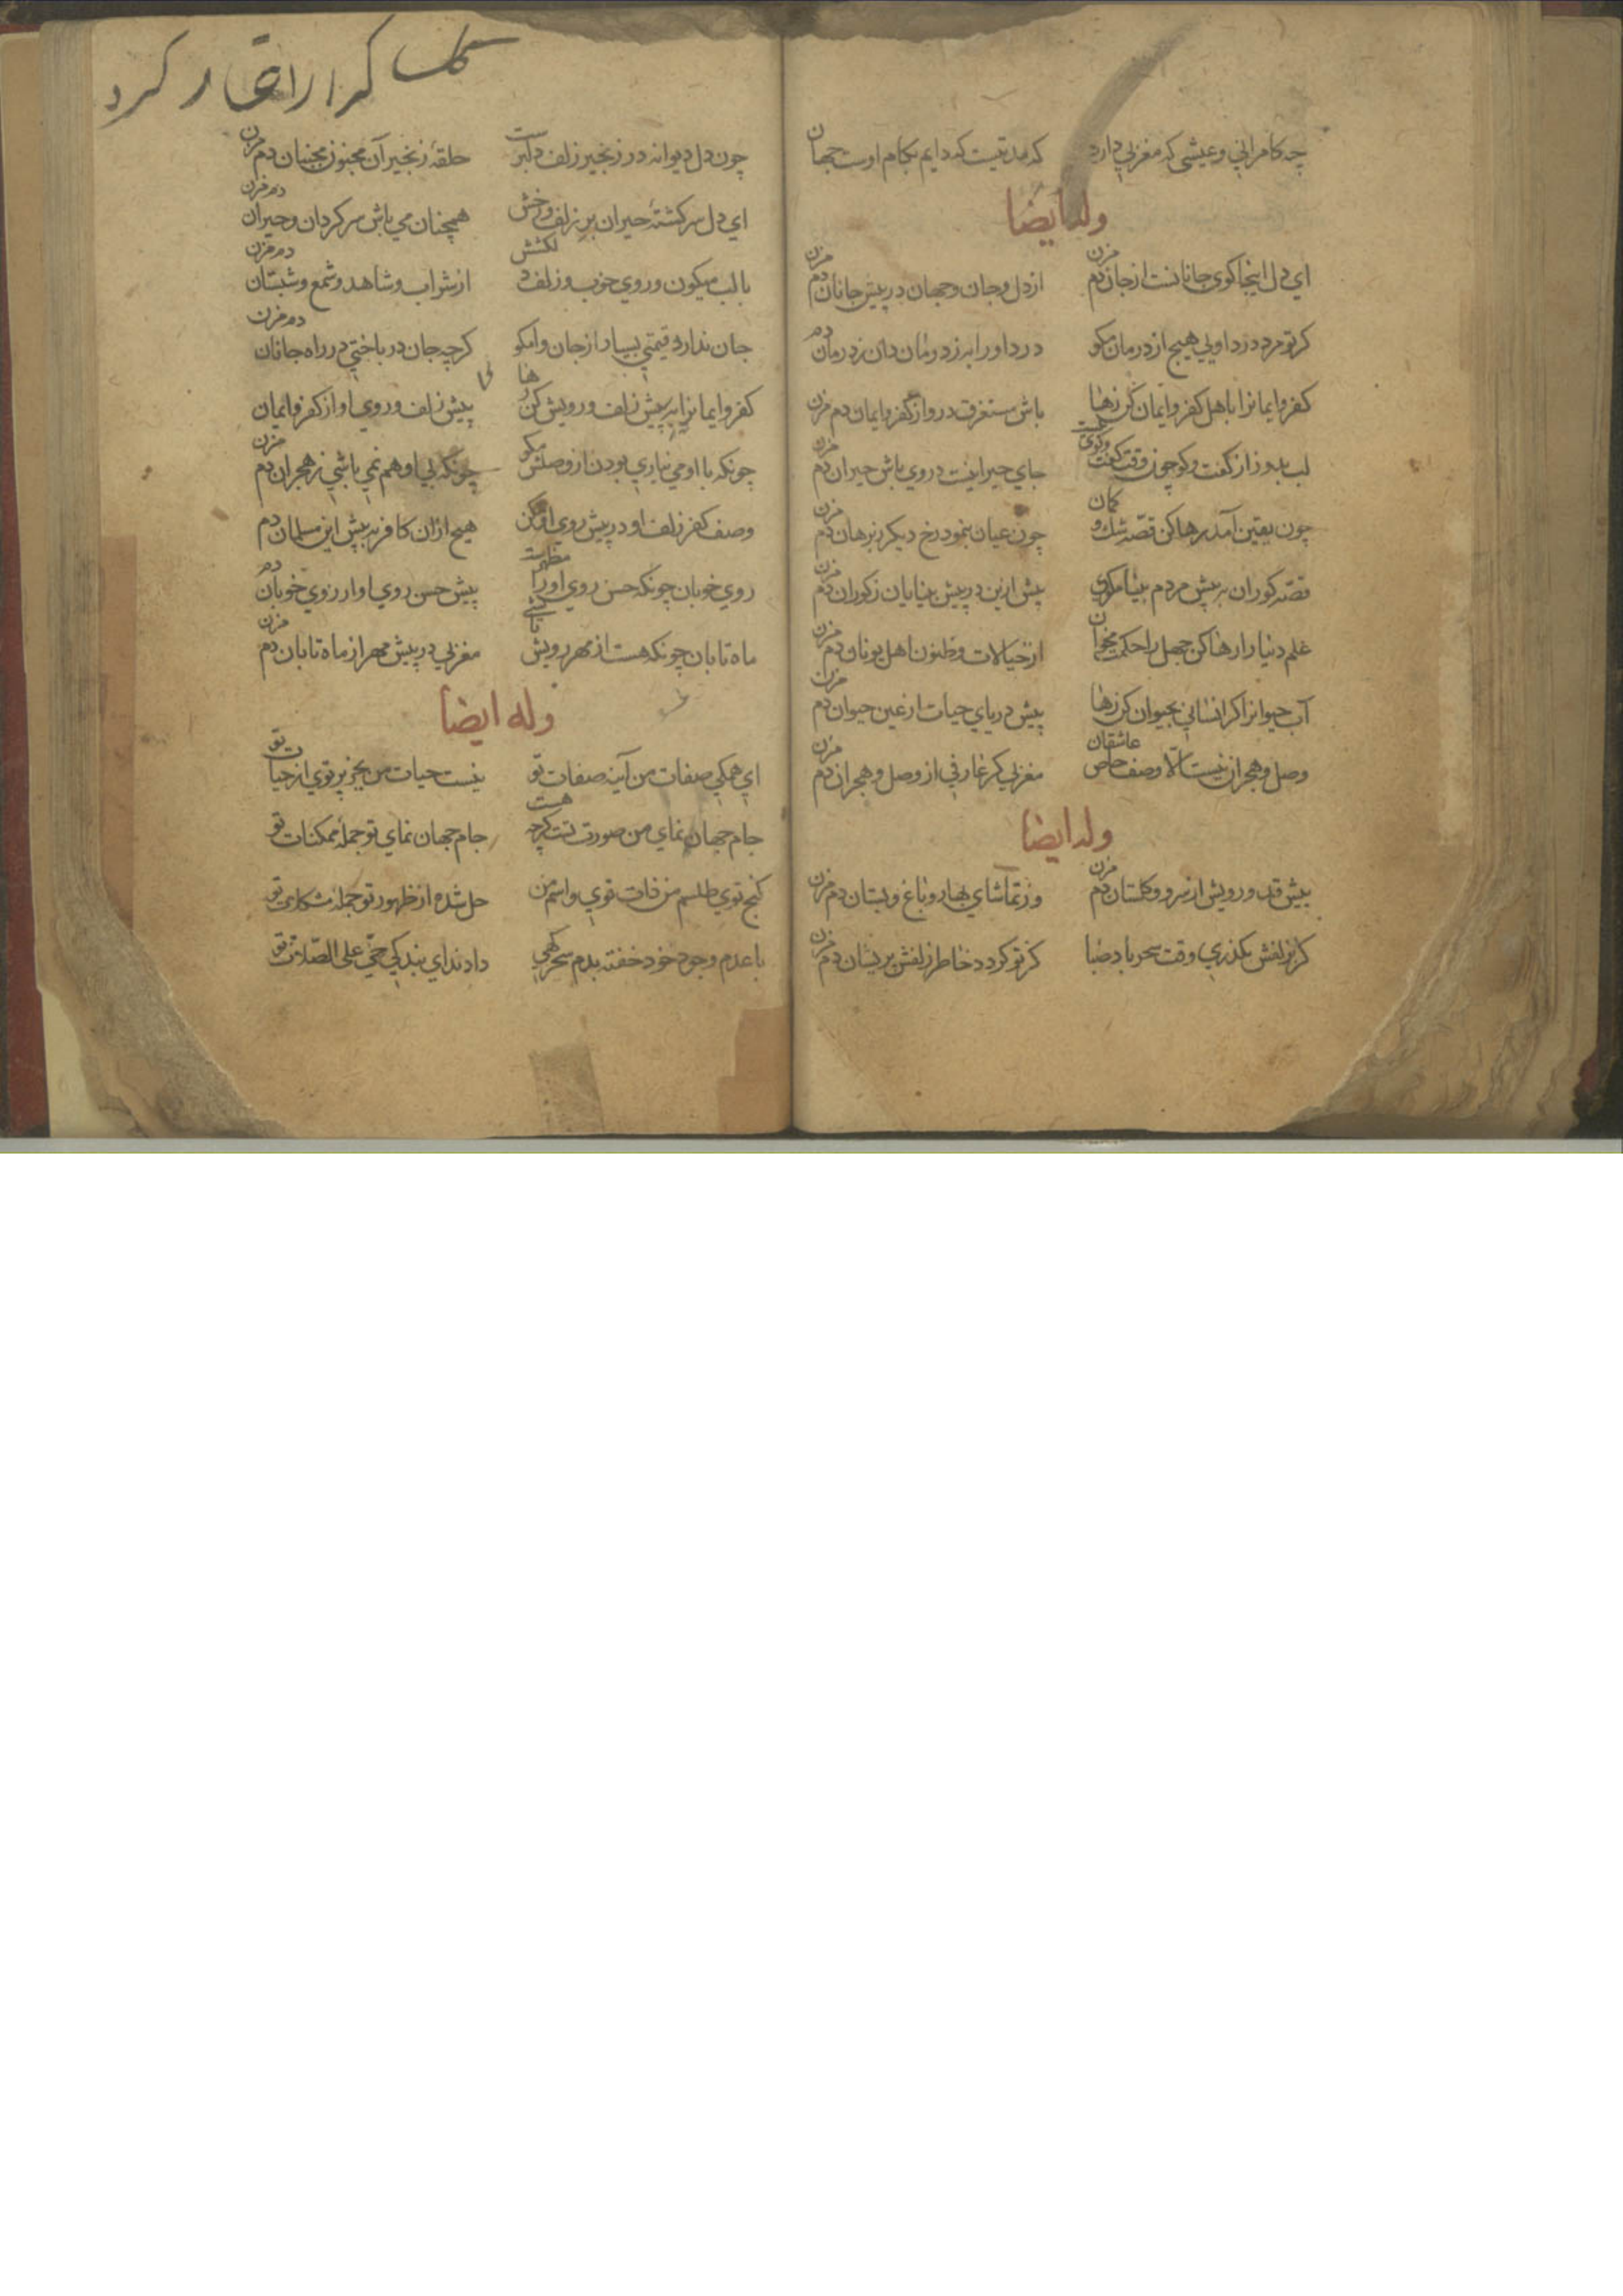 چه کامرانی و عیشی که مغربی دارد که مدتیست که دایم بکام اوست جهان
وله ایضا
ای دل اینجا کوی جانانست از جان دم مزن از دل و جان و جهان در پیش جانان دم مزن
کر تو مرد درد اویی هیچ از درمان مکو درد او را به ز درمان دان ز درمان دم
کفر و ایمانرا باهل کفر و ایمان کن رها باش مستغرق درو از کفر و ایمان دم مزن
لب بدوز از کفت و کو چون وقت کفت وکوی نیست جای حیرانیست در وی باش حیران دم مزن
چون یقین آمد رها کن قصّه شک و کمان چون عیان بنمود رخ دیکر ز برهان دم مزن
قصّه کوران به پیش مردم بینا مکوی پیش ازین در پیش بینایان ز کوران دم مزن
علم دنیا را رها کن جهل را حکمت مخوان از خیالات و ظنون اهل یونان دم مزن
آب حیوانرا کر انسانی بحیوان کن رها پیش دریای حیات از عین حیوان دم مزن
وصل و هجران نیست الّا وصف خاص عاشقان مغربی کر عارفی از وصل و هجران دم مزن
وله ایضا
پیش قد و رویش از سرو و کلستان دم مزن وز تماشای بهار و باغ و بستان دم مزن
کر بزلفش بکذری وقت سحر باد صبا کز تو کردد خاطر زلفش پریشان دم مزن
چون دل دیوانه در زنجیر زلف دلبرست حلقه زنجیر آن مجنون مجنبان دم مزن
ای دل سرکشته حیران بر زلف و رخش همچنان می باش سرکردان و حیران دم مزن
با لب میکون و روی خوب و زلف دلکشش از شراب و شاهد و شمع و شبستان دم مزن
جان ندارد قیمتی بسیار از جان وامکو کرچه جان درباختی در راه جانان دم مزن
کفر و ایمانرا به پیش زلف و رویش کن رها پیش زلف و روی او از کفر و ایمان
چونکه با او می نیاری بودن از وصلش مکو چونکه بی او هم نمی باشی ز هجران دم مزن
وصف کفر زلف او در پیش روی او مکن هیچ ازان کافر به پیش این مسلمان دم
روی خوبان چونکه حسن روی او را مظهرست پیش حسن روی او از روی خوبان دم
ماه تابان چونکه هست از مهر رویش تابشی مغربی در پیش مهر از ماه تابان دم مزن
وله ایضا
ای همکی صفات من آینه صفات تو نیست حیات من بجز پرتوی از حیات تو
جام جهان نمای من صورت تست کرچه هست جام جهان نمای تو جمله ممکنات تو
کنج توی طلسم من ذات توی و اسم من حل شده از ظهور تو جمله مشکلات تو
با عدم وجود خود خفته بدم سحرکهی داد ندای بندکی حیّ علی الصّلات تو